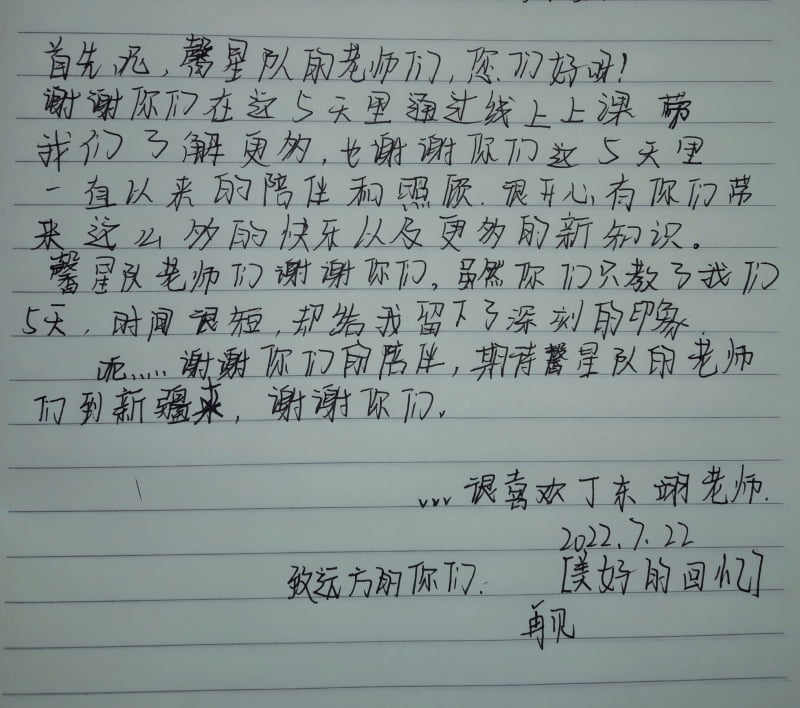 首先呢，馨星队的老师们，您们好呀！
谢谢你们在这5天里通过线上上课 带
我们了解更多，也谢谢你们这5天里
一直以来的陪伴和照顾. 很开心有你们带
来这么多的快乐以及更多的新知识。
馨星队老师们谢谢你们，虽然你们只教了我们
5天，时间很短，却给我留下了深刻的印象.
呃......谢谢你们的陪伴，期待馨星队的老师
们到新疆来，谢谢你们.
...很喜欢丁东翊老师.
2022.7.22
致远方的你们. [美好的回忆]
再见